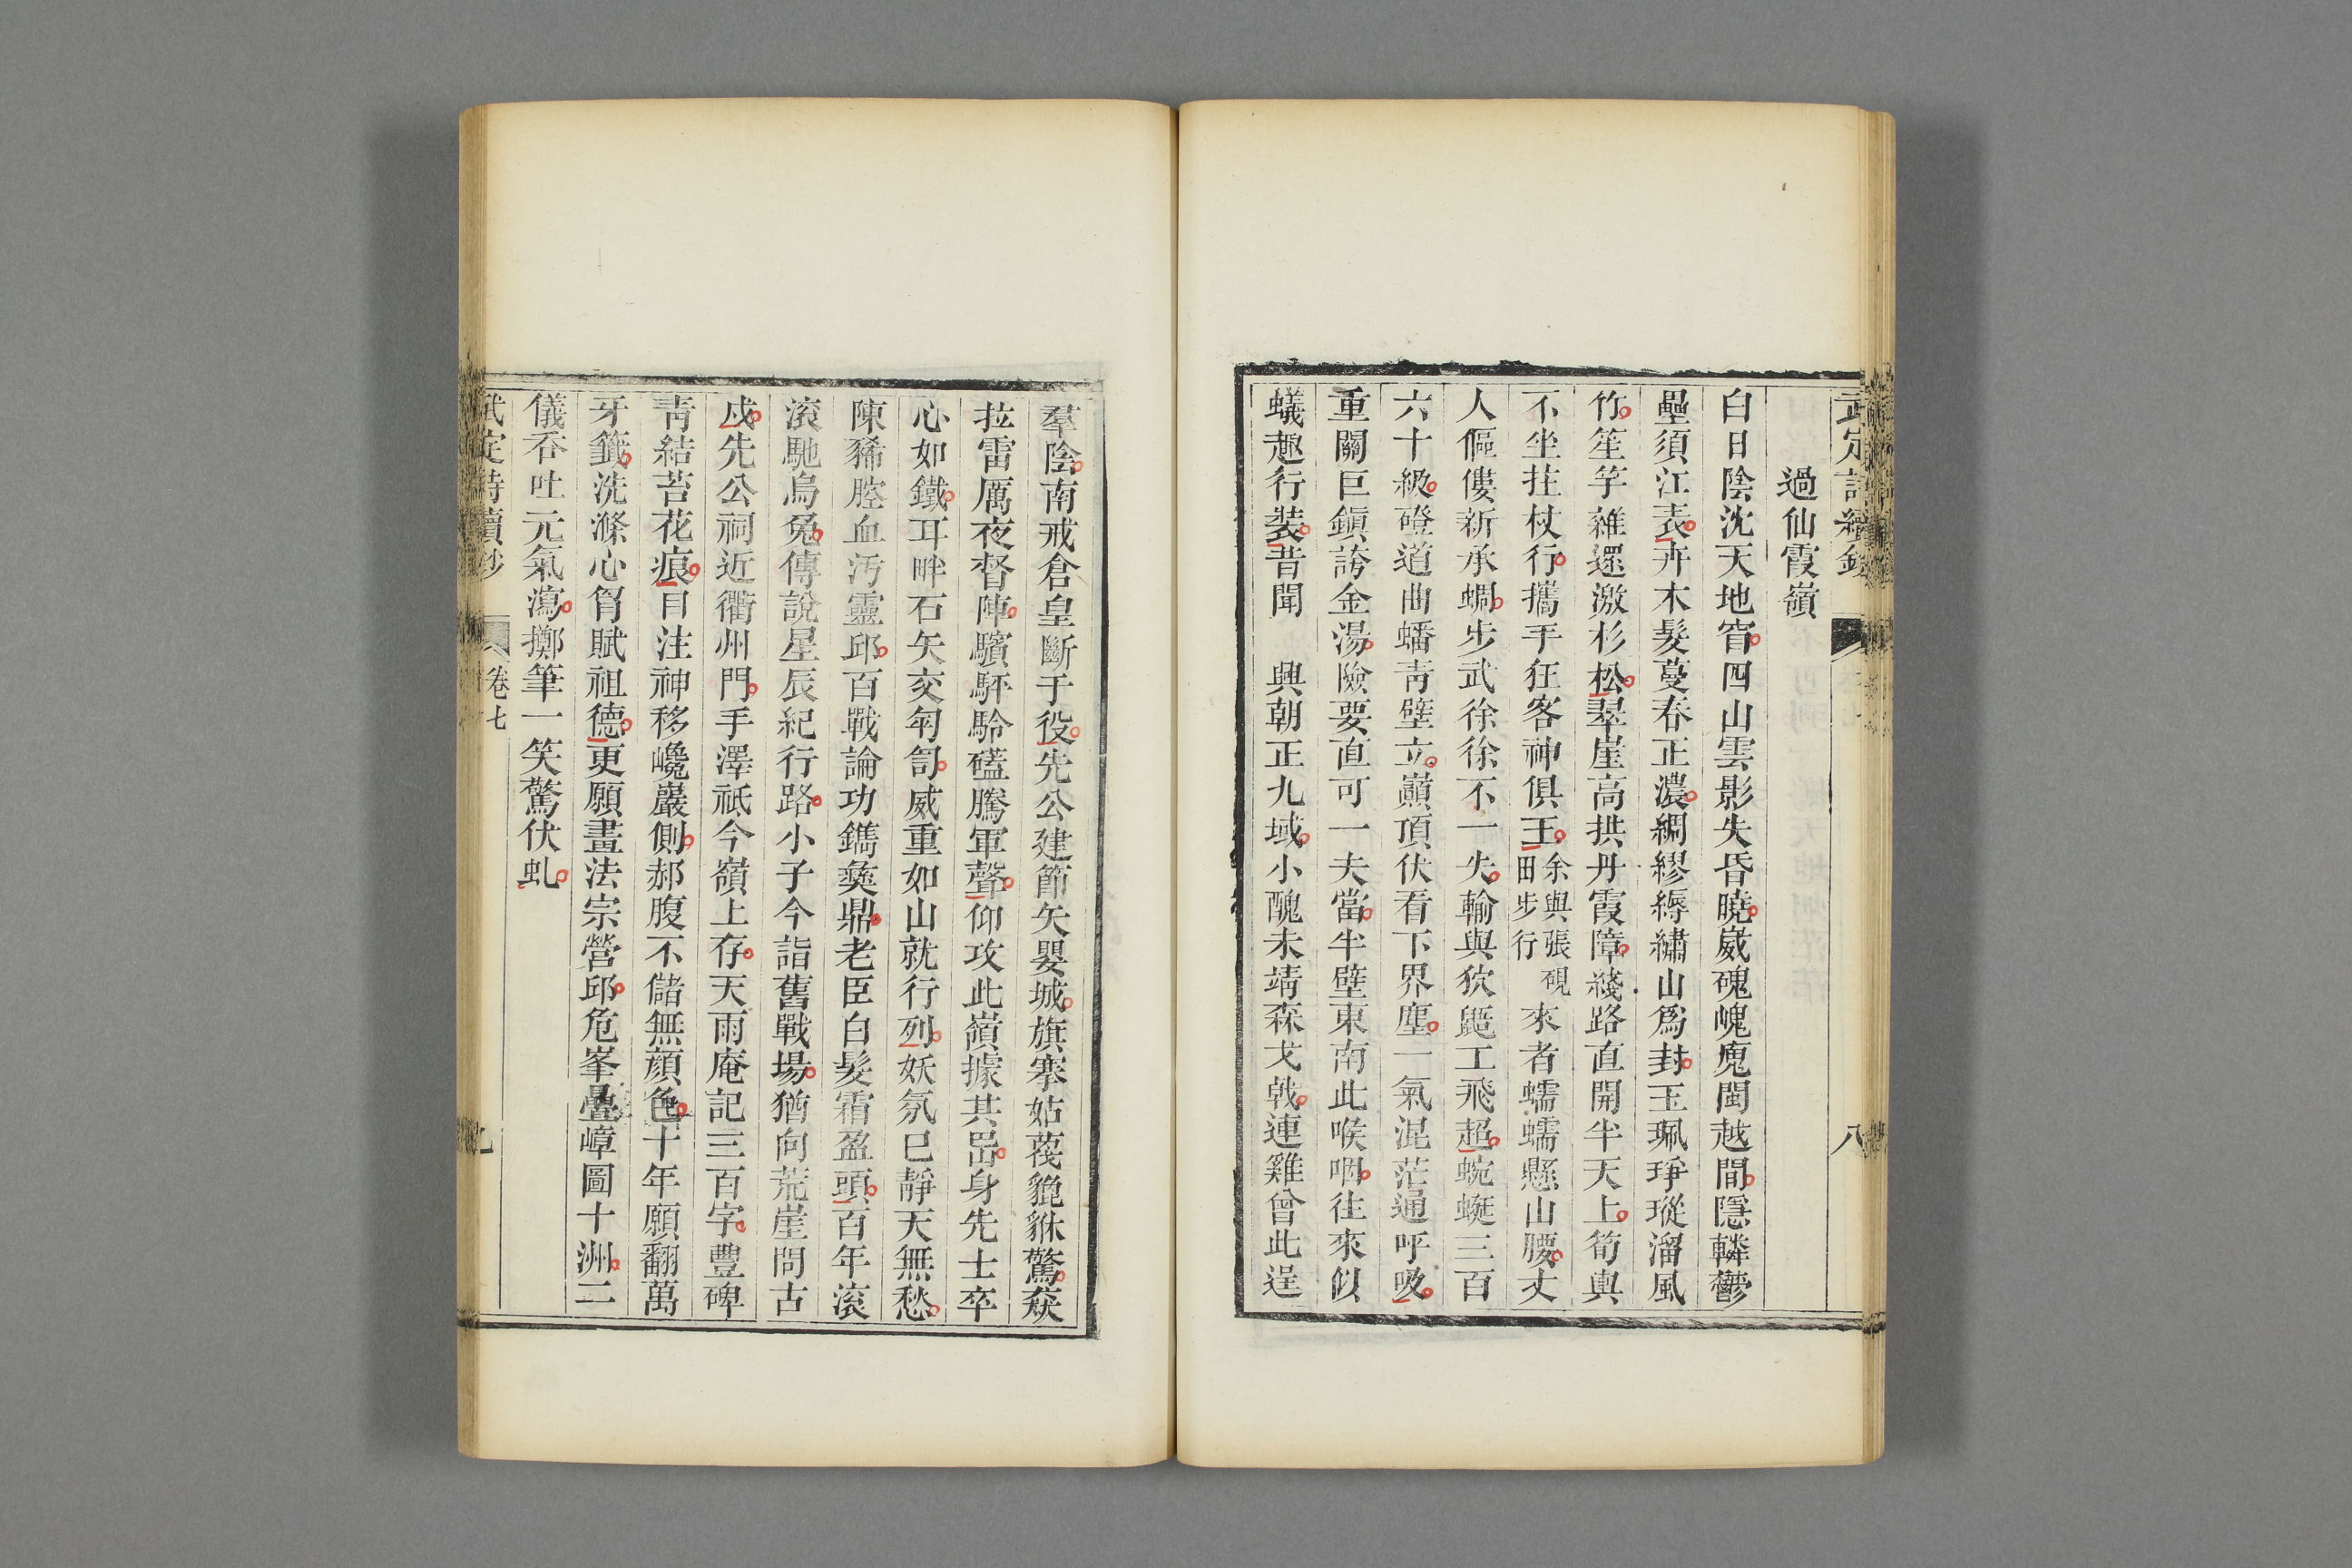 武定詩續鈔
八
過仙霞嶺
白日陰沈天地窅四山雲影失昏曉嵗磈嵬魔閩越間隱轔鬱
壘須江表卉木髮蔓春正濃綢繆縟繡山爲封玉珮琤瑽溜風
竹笙竽雜遝激杉松翠崖高拱丹霞障綫路直開半天上筍輿
不坐拄杖行攜手狂客神俱王余與張硯田步行來者蠕蠕懸山腰丈
人傴僂新承蜩步武徐徐不一失輸與狖鼯工飛超蜿蜒三百
六十級磴道曲蟠靑壁立巔頂伏看下界塵一氣混茫通呼吸
重關巨鎭誇金湯險要直可一夫當半壁東南此喉咽往來似
蟻趣行裝昔聞　興朝正九域小醜未靖森戈戟連雞曾此逞
羣陰南戒倉皇斷于役先公建節矢嬰城旗搴姑蔑貔貅驚猋
拉雷厲夜督陣驞駍駖礚騰軍聲仰攻此嶺據其嵒身先士卒
心如鐵耳畔石矢交匌匒威重如山就行列妖氛已靜天無愁
陳豨腔血汚靈邱百戰論功鐫彝鼎老臣白髮霜盈頭百年滾
滾馳烏兔傳說星辰紀行路小子今詣舊戰場猶向荒崖問古
戍先公祠近衢州門手澤祗今嶺上存天雨庵記三百字豐碑
靑結苔花痕目注神移巉巖側郝腹不儲無顏色十年願翻萬
牙籤洗滌心胷賦祖德更願畫法宗營邱危峯疊嶂圖十洲二
儀吞吐元氣瀉擲筆一笑驚伏虬
武定詩續鈔
卷七
九